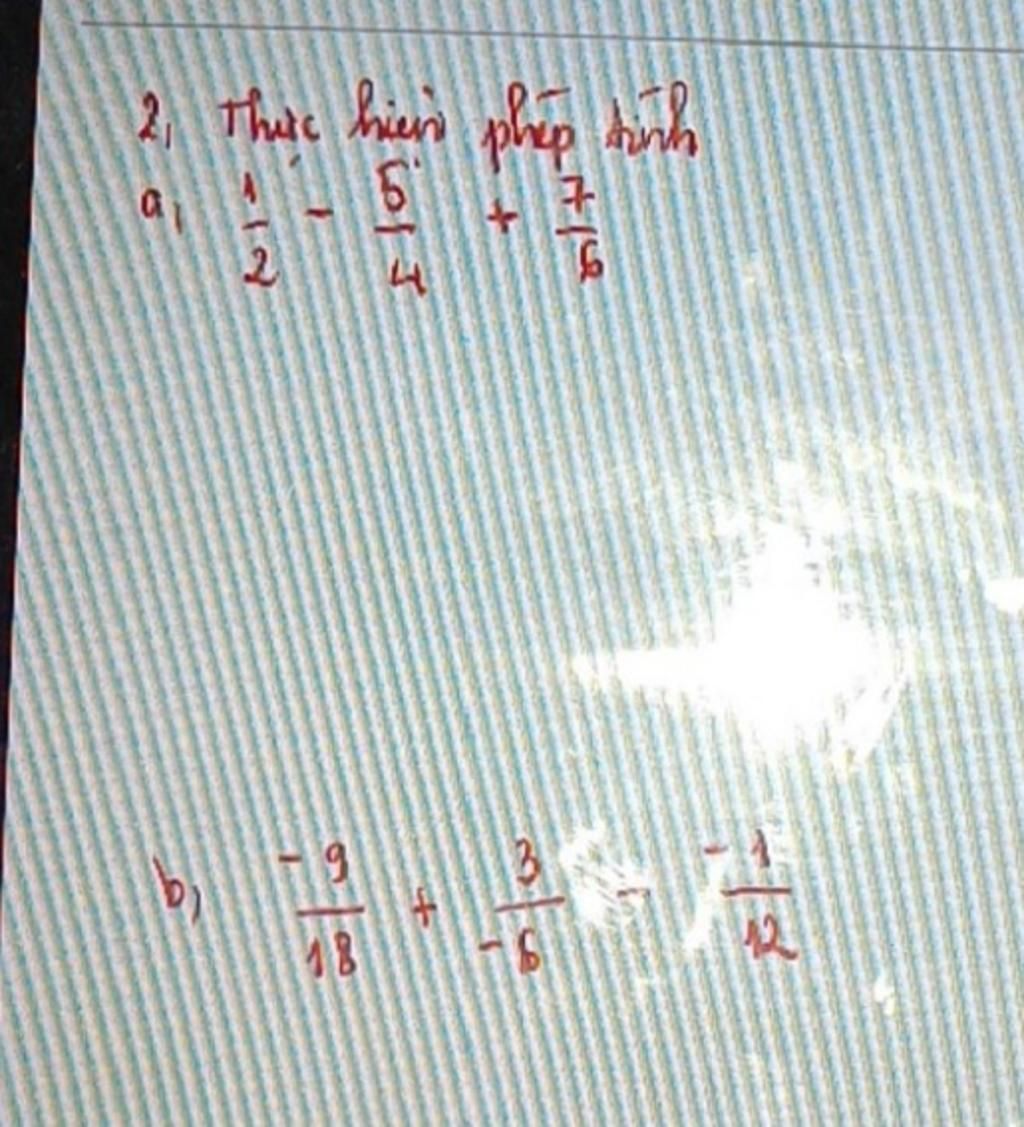 2, Thực hiện phép tính
a, 1/2 - 5/4 + 7/6
b, -9/18 + 3/-6 - -1/12